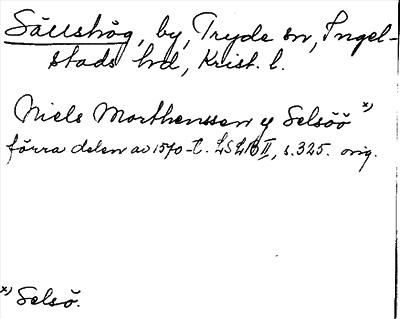 Sälshög, by, Tryde sn, Ingel-
stads hd, Krist. l.
Niels Morthenssen y Selsöö x)
förra delen av 1570-t. LSLB II, s. 325. orig.
x) Selsö.